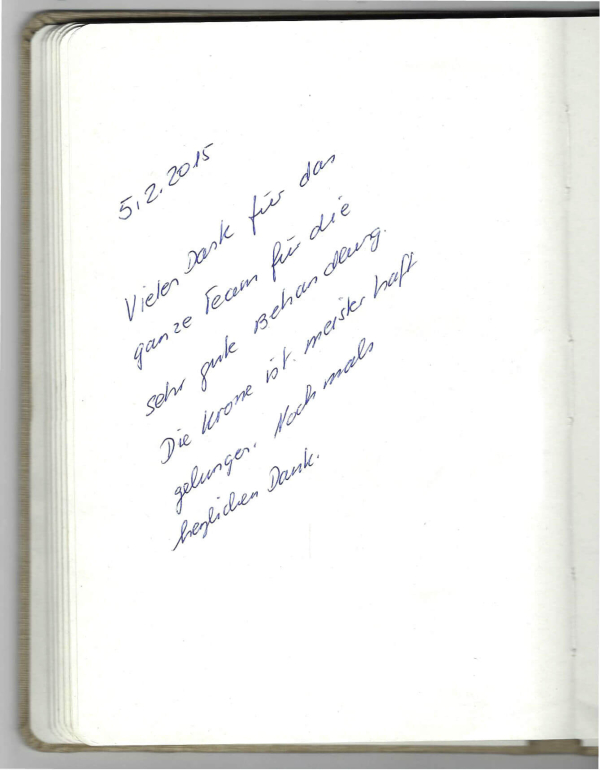 5.2.2015
Vielen Dank für das
ganze Team für die
sehr gute Behandlung.
Die Krone ist meisterhaft
gelungen. Noch mals
herzlichen Dank.